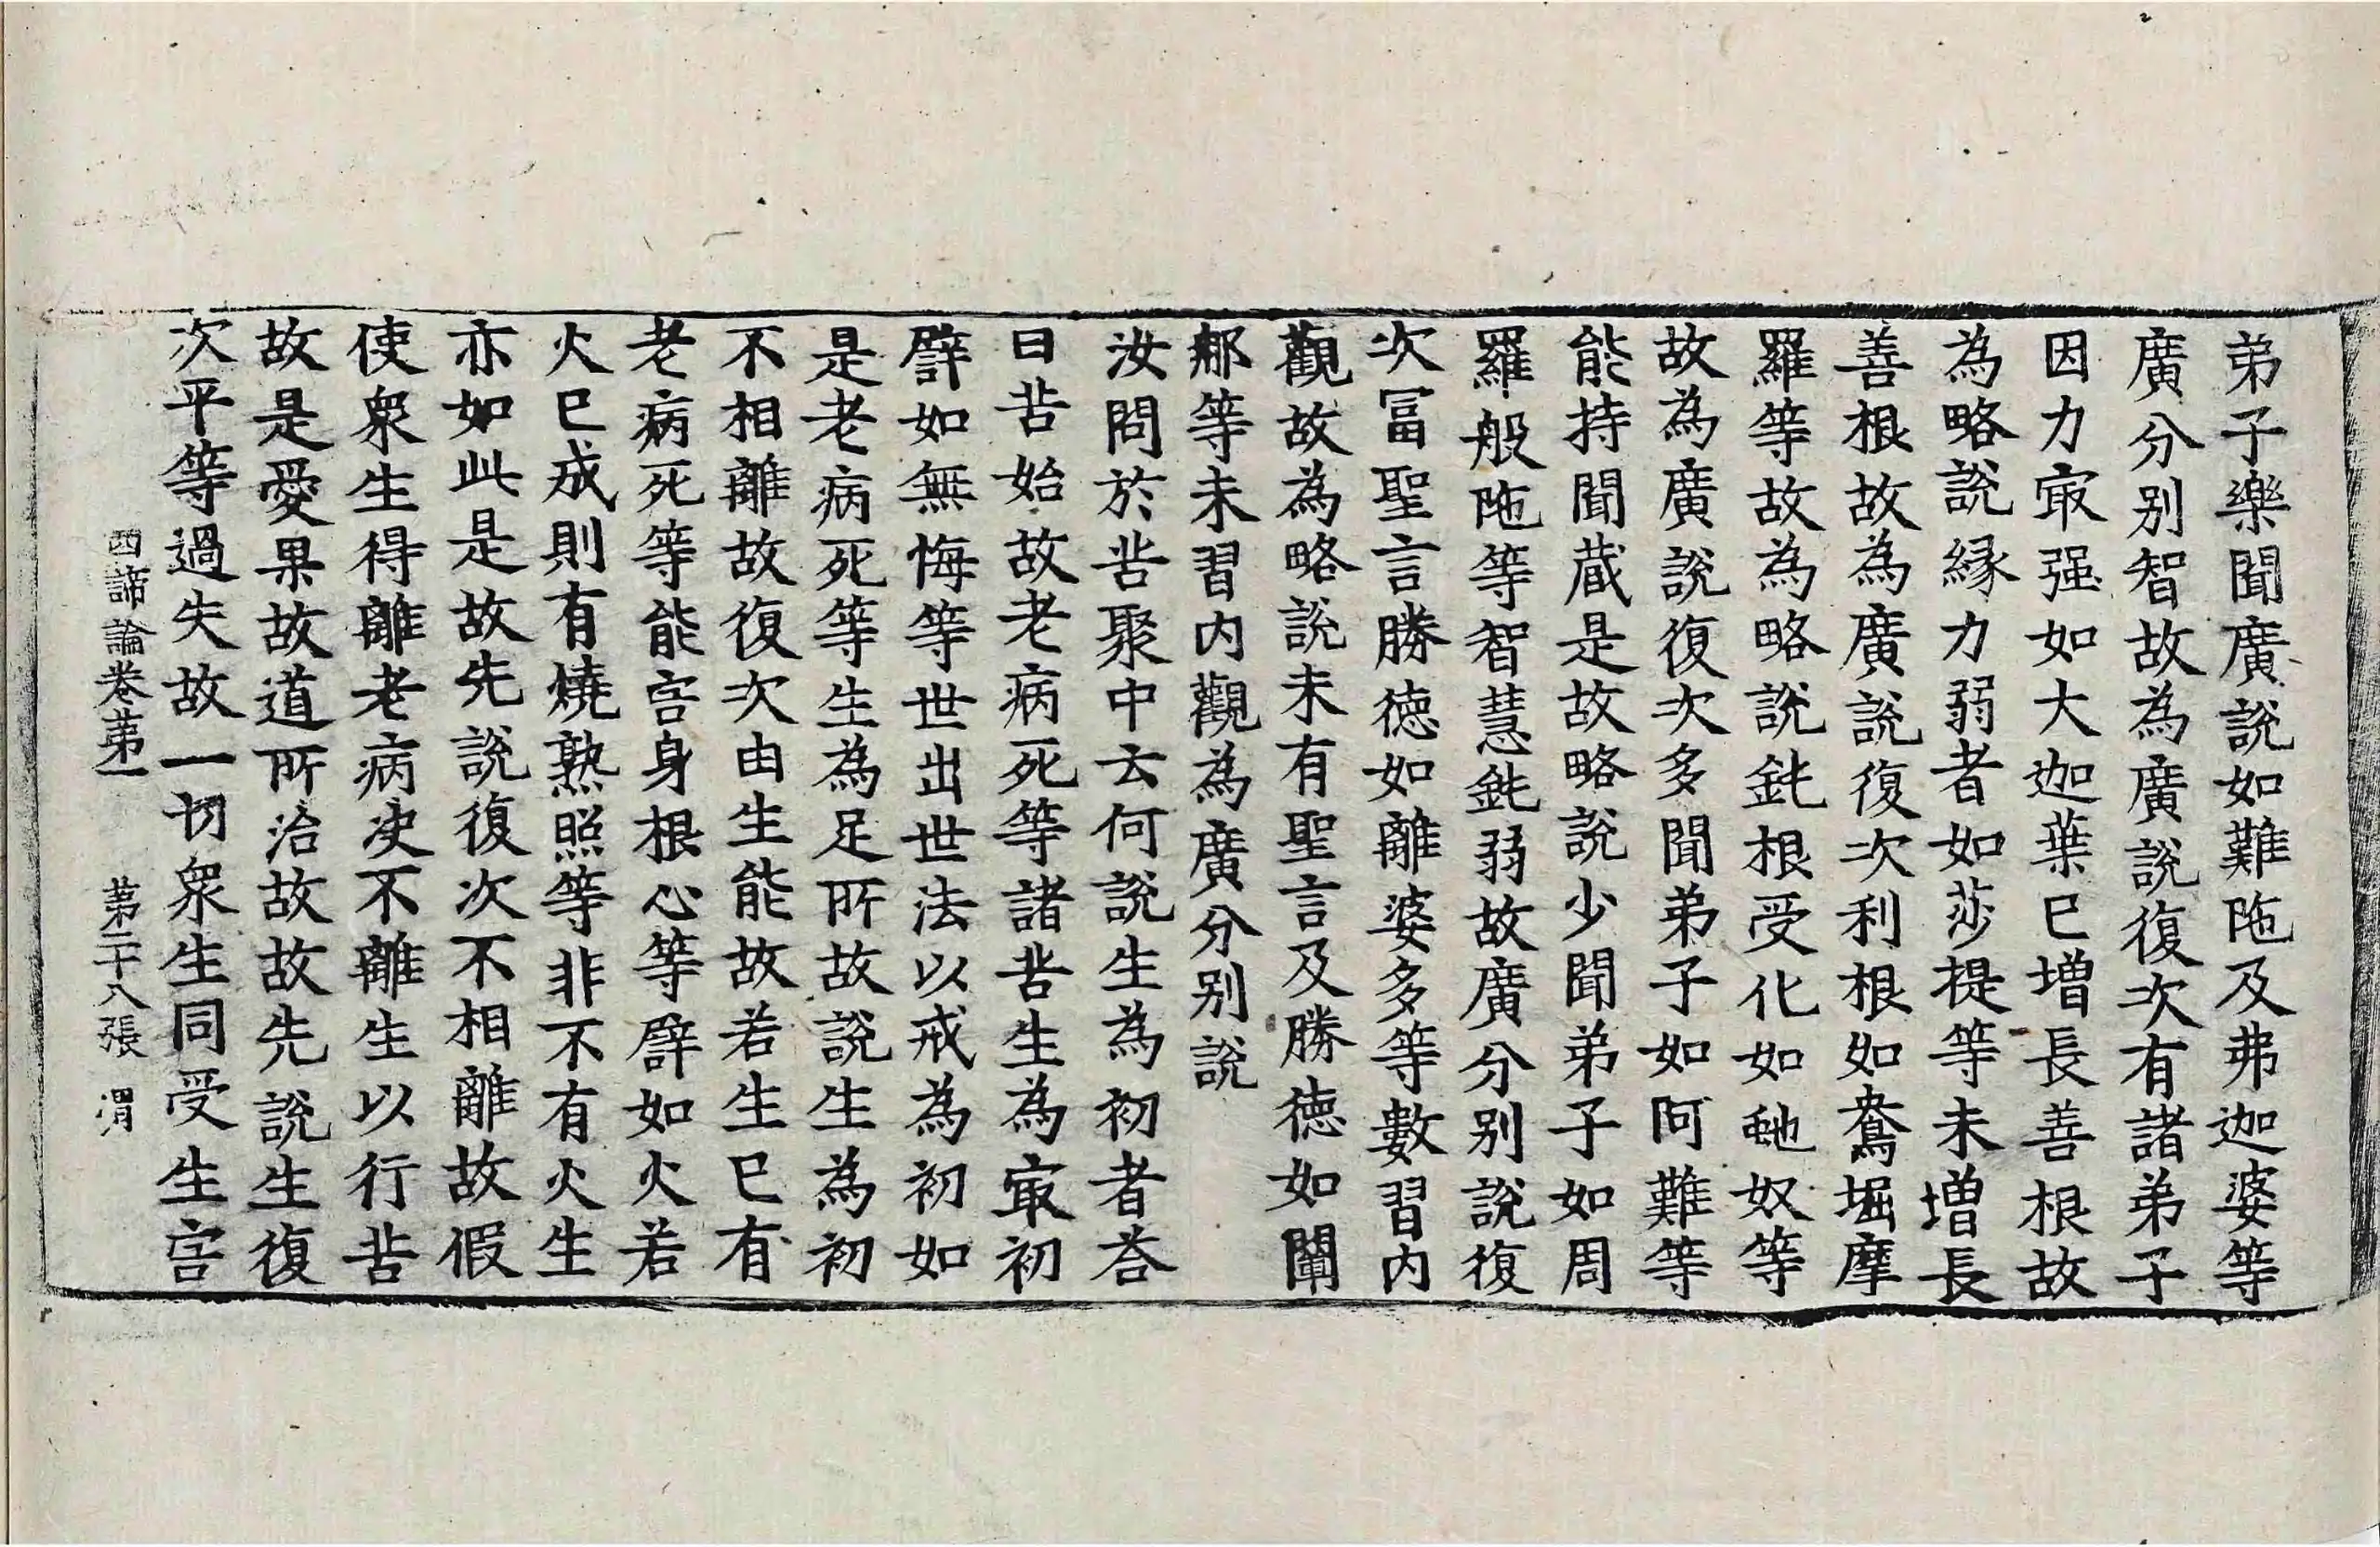 弟子樂聞廣說如難陁及弗迦婆等
廣分別智故為廣說復次有諸弟子
因力㝡强如大迦葉已增長善根故
為略說緣力弱者如莎提等未增長
善根故為廣說復次利根如鴦堀摩
羅等故為略說鈍根受化如虵奴等
故為廣說復次多聞弟子如阿難等
能持聞蔵是故略說少聞弟子如周
羅般陁等智慧鈍弱故廣分別說復
次冨聖言勝徳如離婆多等數習内
觀故為略說未有聖言及勝徳如闡
那等未習内觀為廣分別說
汝問於苦聚中云何說生為初者荅
曰苦始故老病死等諸苦生為㝡初
譬如無悔等世出世法以戒為初如
是老病死等生為足所故說生為初
不相離故復次由生能故若生已有
老病死等能害身根心等譬如火若
火已成則有燒熟照等非不有火生
亦如此是故先說復次不相離故假
使衆生得離老病决不離生以行苦
故是愛果故道所治故故先說生復
次平等過失故一切衆生同受生害
四諦論卷第一 第二十八張 渭